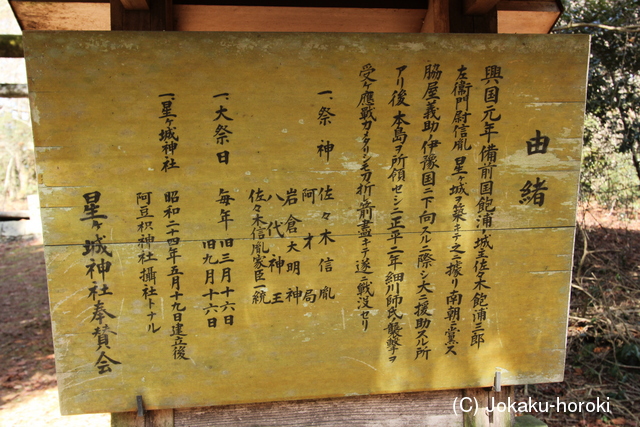 由緒
興国元年備前国飽浦ノ城主佐々木飽浦三郎
左衛門尉信胤星ヶ城ヲ築キテ之ニ據リ南朝ニ黨ス
脇屋義助伊豫国ニ下向スルニ際シ大ニ援助スル所
アリ後本島ヲ所領セシニ正平二年細川師氏ノ襲撃ヲ
受ケ應戦力メタリシモ刀折レ箭盡キテ遂ニ戦没セリ
一、祭神 佐々木信胤
阿才局
岩倉大明神
八代神王
佐々木信胤家臣一統
一、大祭日 毎年 旧三月十六日
旧九月十六日
一、星ヶ城神社 昭和二十四年五月十九日建立後
阿豆枳神社攝社トナル
星ヶ城神社奉賛会
(C) Jokaku-horoki